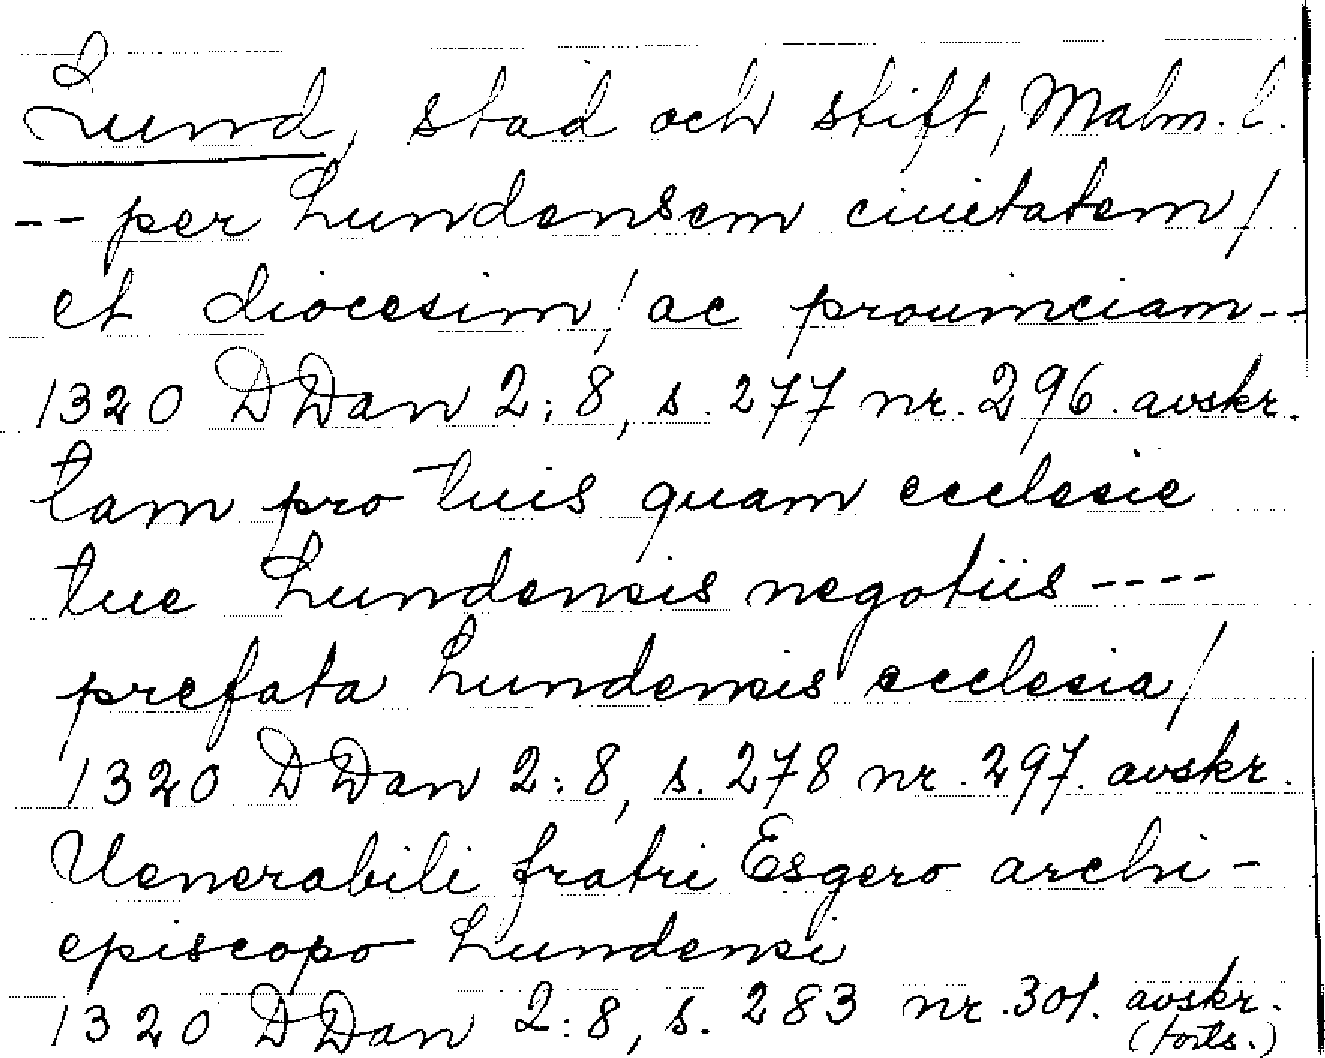 Lund, stad och stift, Malm. l.
-- per Lundensem ciuitatem/
et diocesim/ ac prouinciam--
1320 DDan 2:8, s. 277 nr. 296. avskr.
tam pro tuis quam ecclesie
tue Lundensis negotiis ----
prefata Lundensis ecclesia/
1320 DDan 2:8, s. 278 nr. 297. avskr.
Uenerabili fratri Esgero archi-
episcopo Lundensi
1320 DDan 2:8, s. 283 nr. 301. avskr.
(forts.)